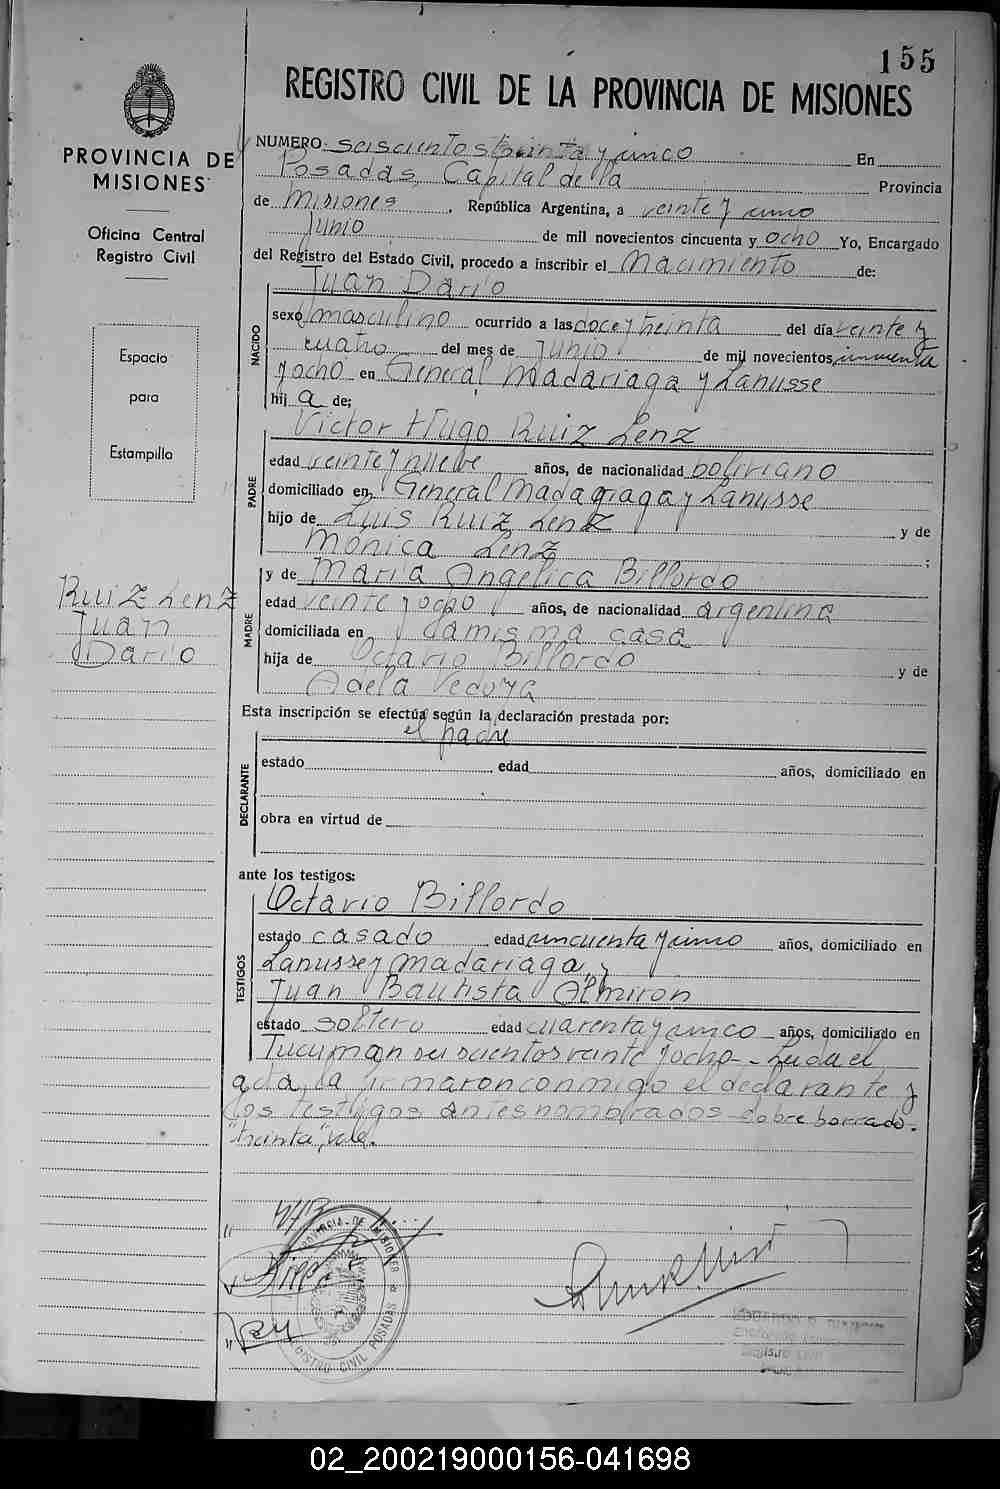 155
REGISTRO CIVIL DE LA PROVINCIA DE MISIONES
PROVINCIA DE
MISIONES
Oficina Central
Registro Civil
Espacio
para
Estampilla
Ruiz Lenz
Juan
Dario
NUMERO: seiscientos treinta y cinco En
Posadas, Capital de la Provincia
de Misiones, República Argentina, a veinte y cinco
Junio de mil novecientos cincuenta y ocho Yo, Encargado
del Registro del Estado Civil, procedo a inscribir el Nacimiento de:
NACIDO
Juan Dario
sexo masculino ocurrido a las doce y treinta del día veinte y
cuatro del mes de Junio de mil novecientos cincuenta
y ocho en General Madariaga y Lanusse
hij a de:
PADRE
Victor Hugo Ruiz Lenz
edad veinte y nueve años, de nacionalidad boliviano
domiciliado en General Madagriaga y Lanusse
hijo de Luis Ruiz Lenz y de
Mónica Lenz ;
MADRE
y de Maria Angélica Billordo
edad veinte y ocho años, de nacionalidad argentina
domiciliada en la misma casa
hija de Octavio Billordo y de
Adela Vedoya
Esta inscripción se efectúa según la declaración prestada por:
el padre
DECLARANTE
estado edad años, domiciliado en
obra en virtud de
ante los testigos:
TESTIGOS
Octavio Billordo
estado casado edad cincuenta y cinco años, domiciliado en
Lanusse y Madariaga, y
Juan Bautista Almiron
estado soltero edad cuarenta y cinco años, domiciliado en
Tucuman seiscientos veinte y ocho - Leida el
acta, la firmaron conmigo el declarante y
los testigos antes nombrados - sobre borrado -
"treinta", vale.
PROVINCIA DE MISIONES
REGISTRO CIVIL POSADAS
02_200219000156-041698